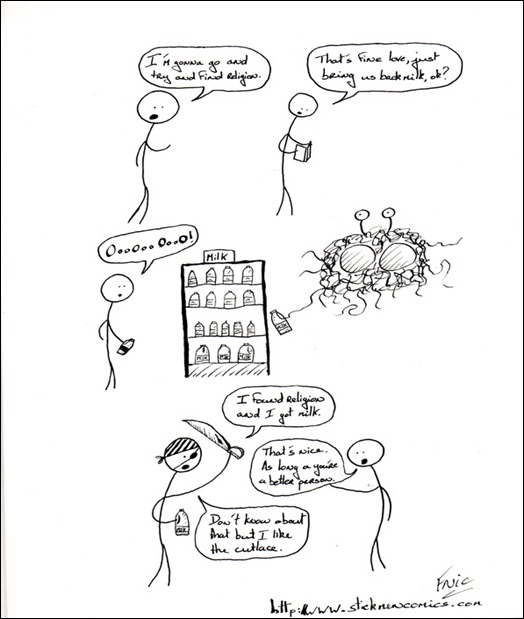 I'm gonna go and
try and find religion.
That's fine love, just
bring us back milk, ok?
OooOoo OooO!
Milk
I found religion
and I got milk.
That's nice.
As long a you're
a better person.
Don't know about
that but I like
the cutlace.
FNIC
http://www.stickmencomics.com